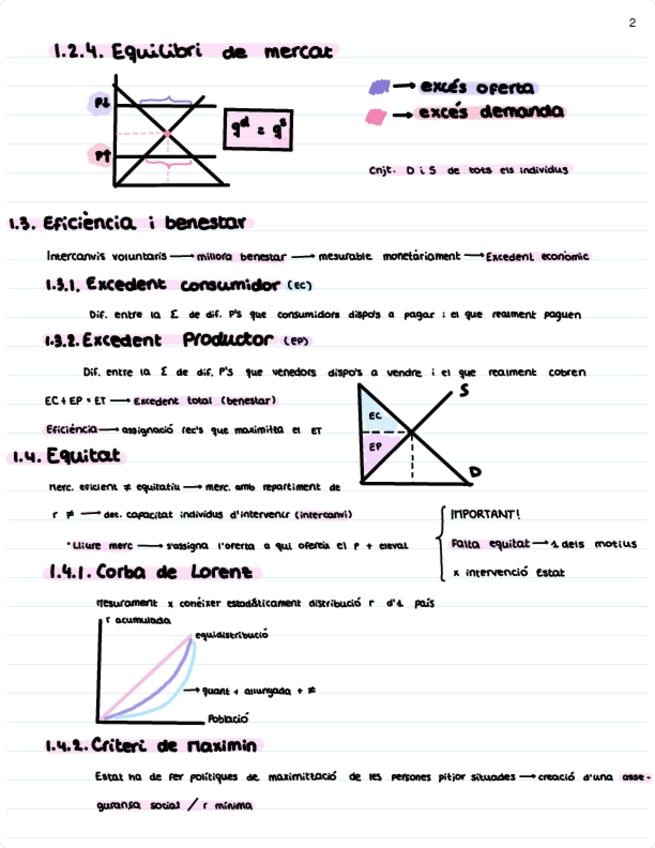 2
1.2.4. Equilibri de mercat
P↓
P↑
qᵈ = qˢ
→ excés oferta
→ excés demanda
Cnjt. D i S de tots els individus
1.3. Eficiència i benestar
Intercanvis voluntaris → millora benestar → mesurable monetàriament → Excedent econòmic
1.3.1. Excedent consumidor (EC)
Dif. entre la Σ de dif. P's que consumidors dispo's a pagar i el que realment paguen
1.3.2. Excedent Productor (EP)
Dif. entre la Σ de dif. P's que venedors dispo's a vendre i el que realment cobren
EC + EP = ET → Excedent total (benestar)
Eficiència → assignació rec's que maximitza el ET
EC
EP
S
D
1.4. Equitat
Merc. eficient ≠ equitatiu → merc. amb repartiment de
r ≠ → det. capacitat individus d'intervenir (intercanvi)
* Lliure merc → s'assigna l'oferta a qui ofereix el P + elevat
IMPORTANT!
Falta equitat → 1 dels motius
x intervenció Estat
1.4.1. Corba de Lorenz
Mesurament x conèixer estadísticament distribució r d'1 país
r acumulada
equidistribució
→ quant + allunyada + ≠
Població
1.4.2. Criteri de Maximin
Estat ha de fer polítiques de maximització de les persones pitjor situades → creació d'una asse-
gurança social / r mínima